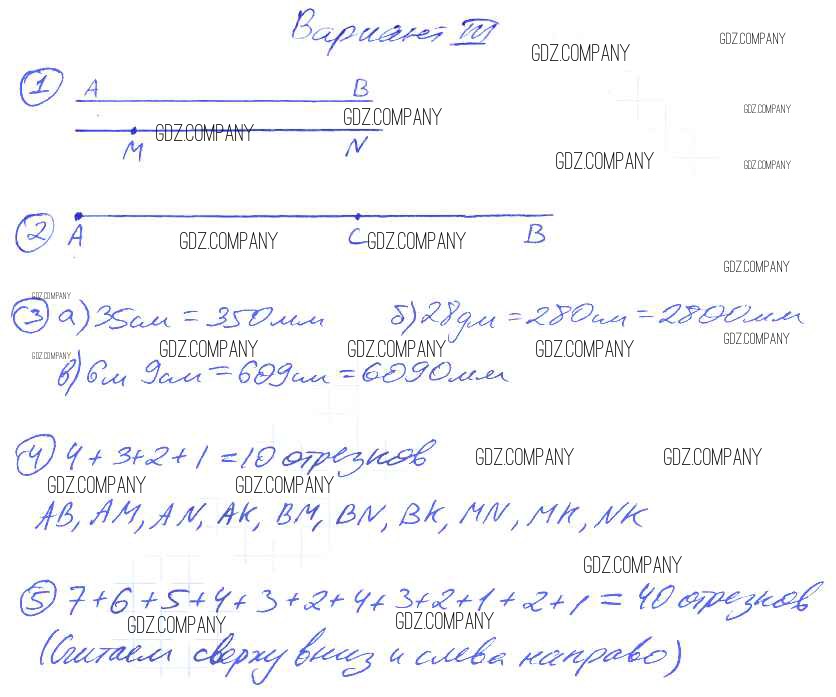 Вариант III
GDZ.COMPANY GDZ.COMPANY
1 A B
GDZ.COMPANY GDZ.COMPANY GDZ.COMPANY
M N GDZ.COMPANY GDZ.COMPANY
2 A C B
GDZ.COMPANY GDZ.COMPANY
GDZ.COMPANY
GDZ.COMPANY
3 а) 35см = 350мм б) 28дм = 280см = 2800мм
GDZ.COMPANY GDZ.COMPANY GDZ.COMPANY GDZ.COMPANY GDZ.COMPANY
в) 6м 9см = 609см = 6090мм
4 4 + 3 + 2 + 1 = 10 отрезков
GDZ.COMPANY GDZ.COMPANY
GDZ.COMPANY GDZ.COMPANY
AB, AM, AN, AK, BM, BN, BK, MN, MK, NK
GDZ.COMPANY
5 7 + 6 + 5 + 4 + 3 + 2 + 4 + 3 + 2 + 1 + 2 + 1 = 40 отрезков
GDZ.COMPANY GDZ.COMPANY
(Считаем сверху вниз и слева направо)